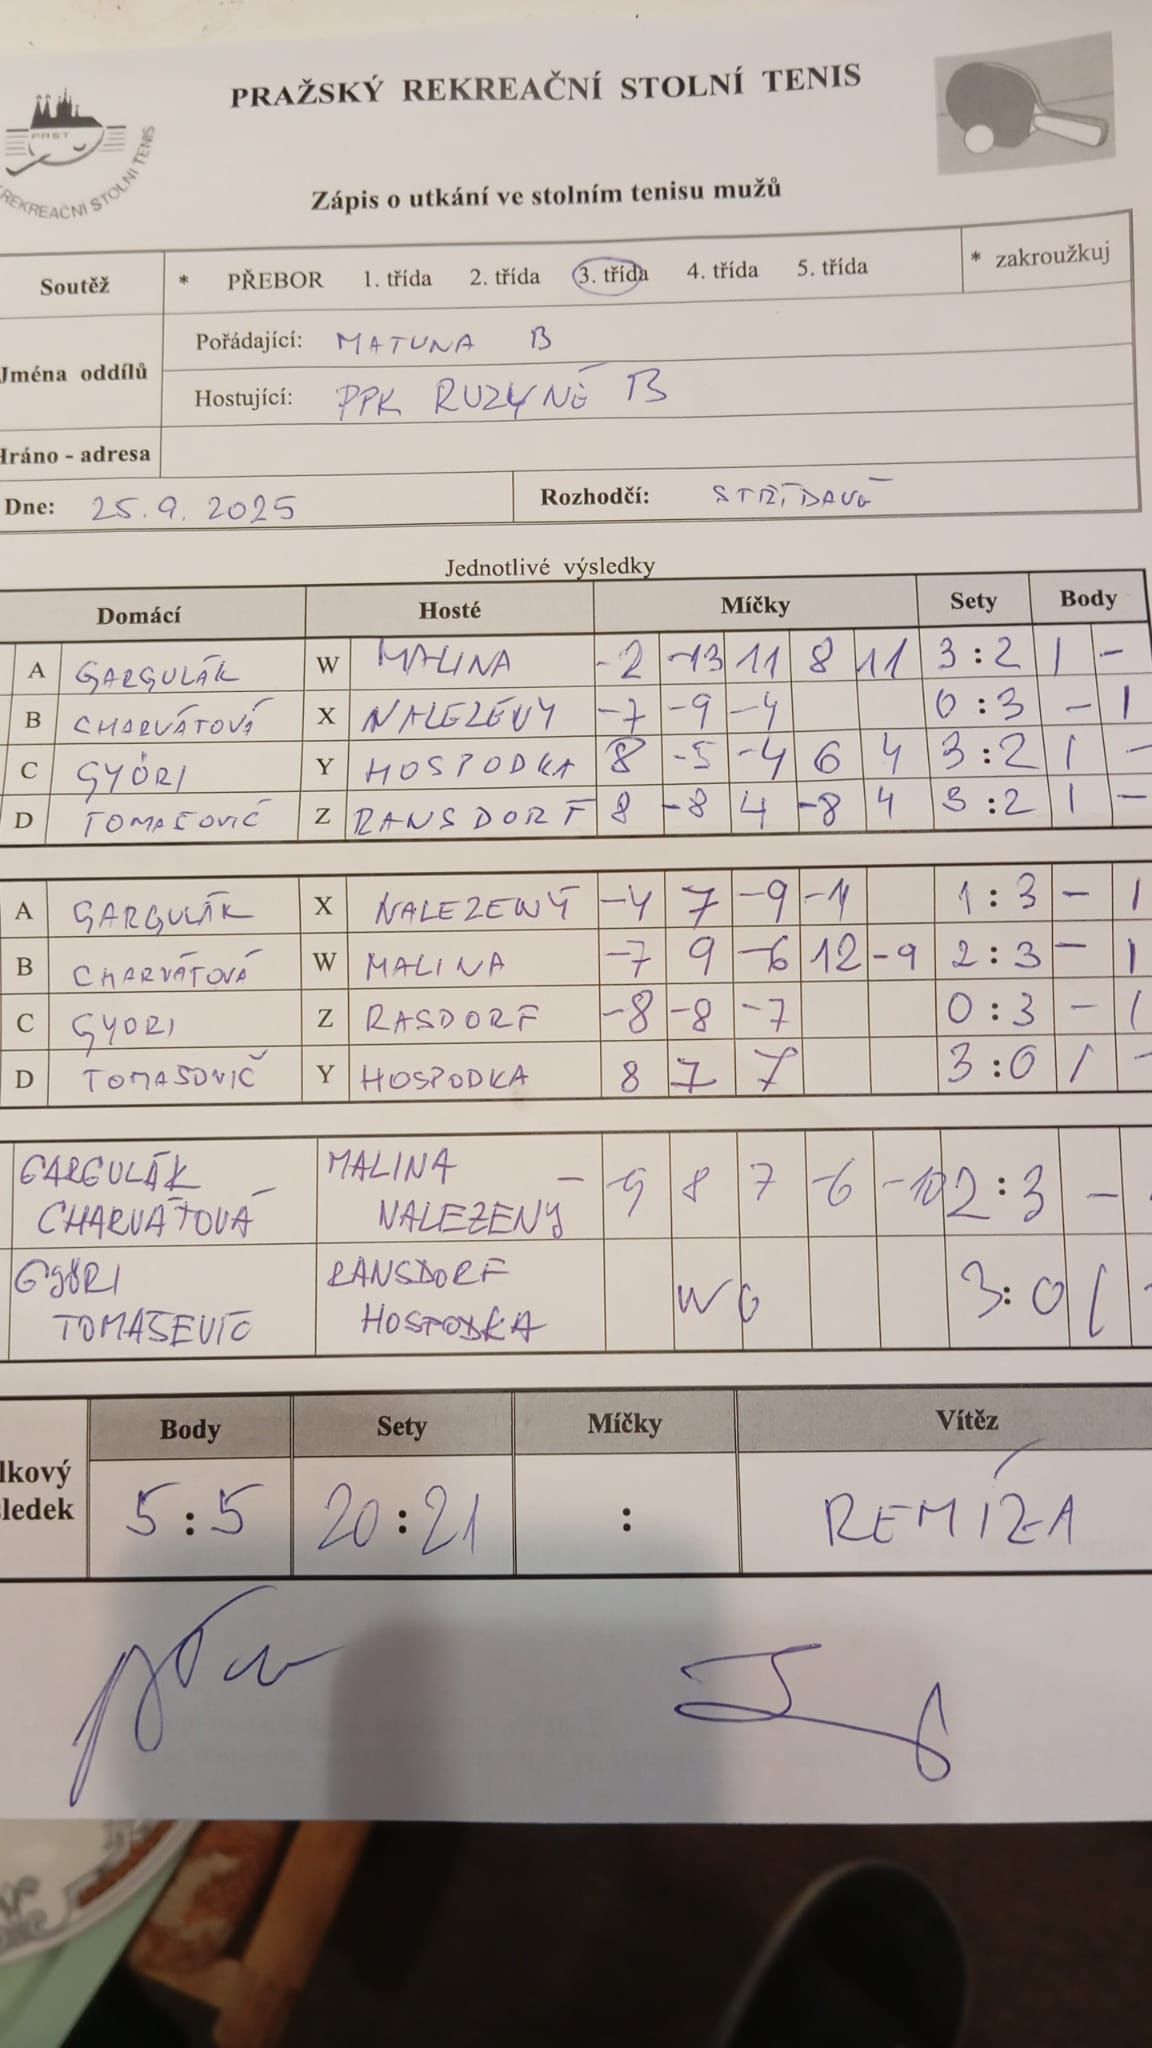 PRAŽSKÝ REKREAČNÍ STOLNÍ TENIS
PRST
REKREAČNÍ STOLNÍ TENIS
Zápis o utkání ve stolním tenisu mužů
Soutěž * PŘEBOR 1. třída 2. třída 3. třída 4. třída 5. třída * zakroužkuj
Jména oddílů
Pořádající: MATUNA B
Hostující: PPK RUZYNĚ B
Hráno - adresa
Dne: 25.9.2025 Rozhodčí: STŘÍDAVĚ
Jednotlivé výsledky
Domácí Hosté Míčky Sety Body
A GARGULÁK W MALINA -2 -13 11 8 11 3:2 1 -
B CHARVÁTOVÁ X NALEZENÝ -7 -9 -4 0:3 - 1
C GYÖRI Y HOSPODKA 8 -5 -4 6 4 3:2 1 -
D TOMAŠOVIČ Z RANSDORF 8 -8 4 -8 4 3:2 1 -
A GARGULÁK X NALEZENÝ -4 7 -9 -11 1:3 - 1
B CHARVÁTOVÁ W MALINA -7 9 -6 12 -9 2:3 - 1
C GYORI Z RASDORF -8 -8 -7 0:3 - 1
D TOMASOVIČ Y HOSPODKA 8 7 7 3:0 1 -
GARGULÁK MALINA
CHARVÁTOVÁ NALEZENÝ -9 8 7 -6 -10 2:3 -
GYÖRI RANSDORF
TOMAŠEVIC HOSPODKA WO 3:0 1 -
Body Sety Míčky Vítěz
lkový
ledek 5:5 20:21 : REMÍZA